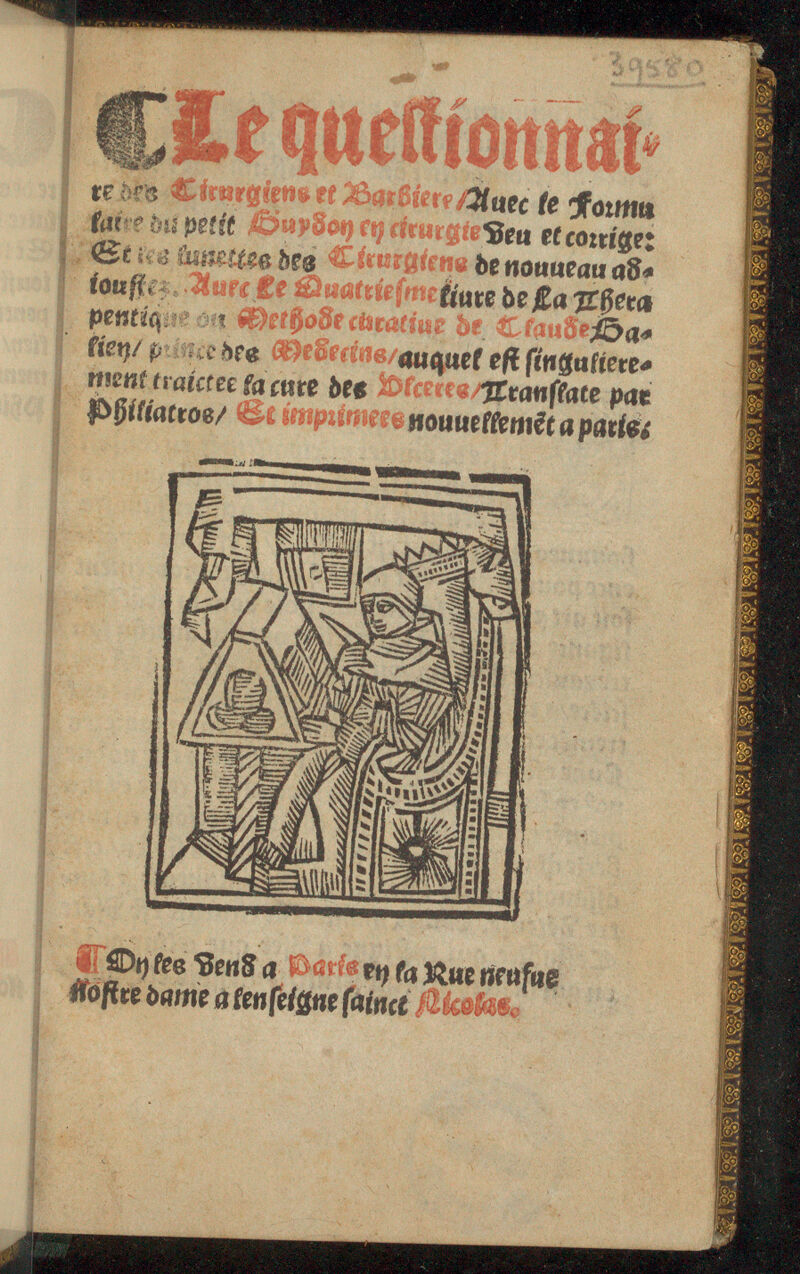 39580
¶Le questionnai-
re des Cirurgiens et Barbiers/Auec le Formu
laire du petit Guydon en cirurgie Veu et corrige:
Et les lunettes des Cirurgiens de nouueau ad-
ioustes. Auec Le Quatriesme liure de La Thera
pentique ou Methode curatiue de Claude Ga-
lien/ prince des Medecins/auquel est singuliere-
ment traictee la cure des Vlceres/Translate par
Philiatros/ Et imprimees nouuellemēt a paris:
¶On les vend a Paris en la Rue neufue
nostre dame a lenseigne sainct Nicolas.